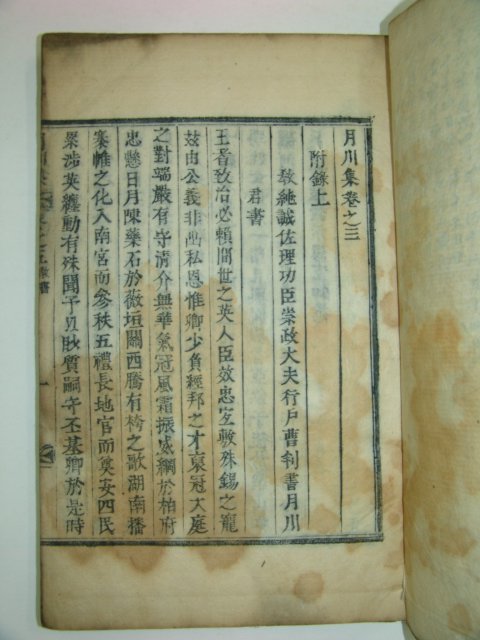 月川集卷之三
附錄上
敎純誠佐理功臣崇政大夫行戶曹判書月川
君書
王者致治必賴間世之英人臣效忠宜敷殊錫之寵
玆由公義非出私恩惟卿少負經邦之才裒冠大庭
之對端嚴有守淸介無華氣冠風霜振威綱於柏府
忠懸日月陳藥石於薇垣關西騰有袴之歌湖南播
褰帷之化入南宮而參秩五禮長地官而奠安四民
累涉英躔動有殊聞予以眇質嗣守丕基卿於是時